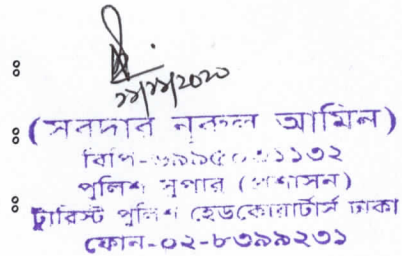 ঃ
ঃ (সরদার নূরুল আমিন)
পুলিশ সুপার (প্রশাসন)
ঃ ট্যুরিস্ট পুলিশ হেডকোয়ার্টার্স ঢাকা
ফোন-০২-৮৩৯৯২৩১